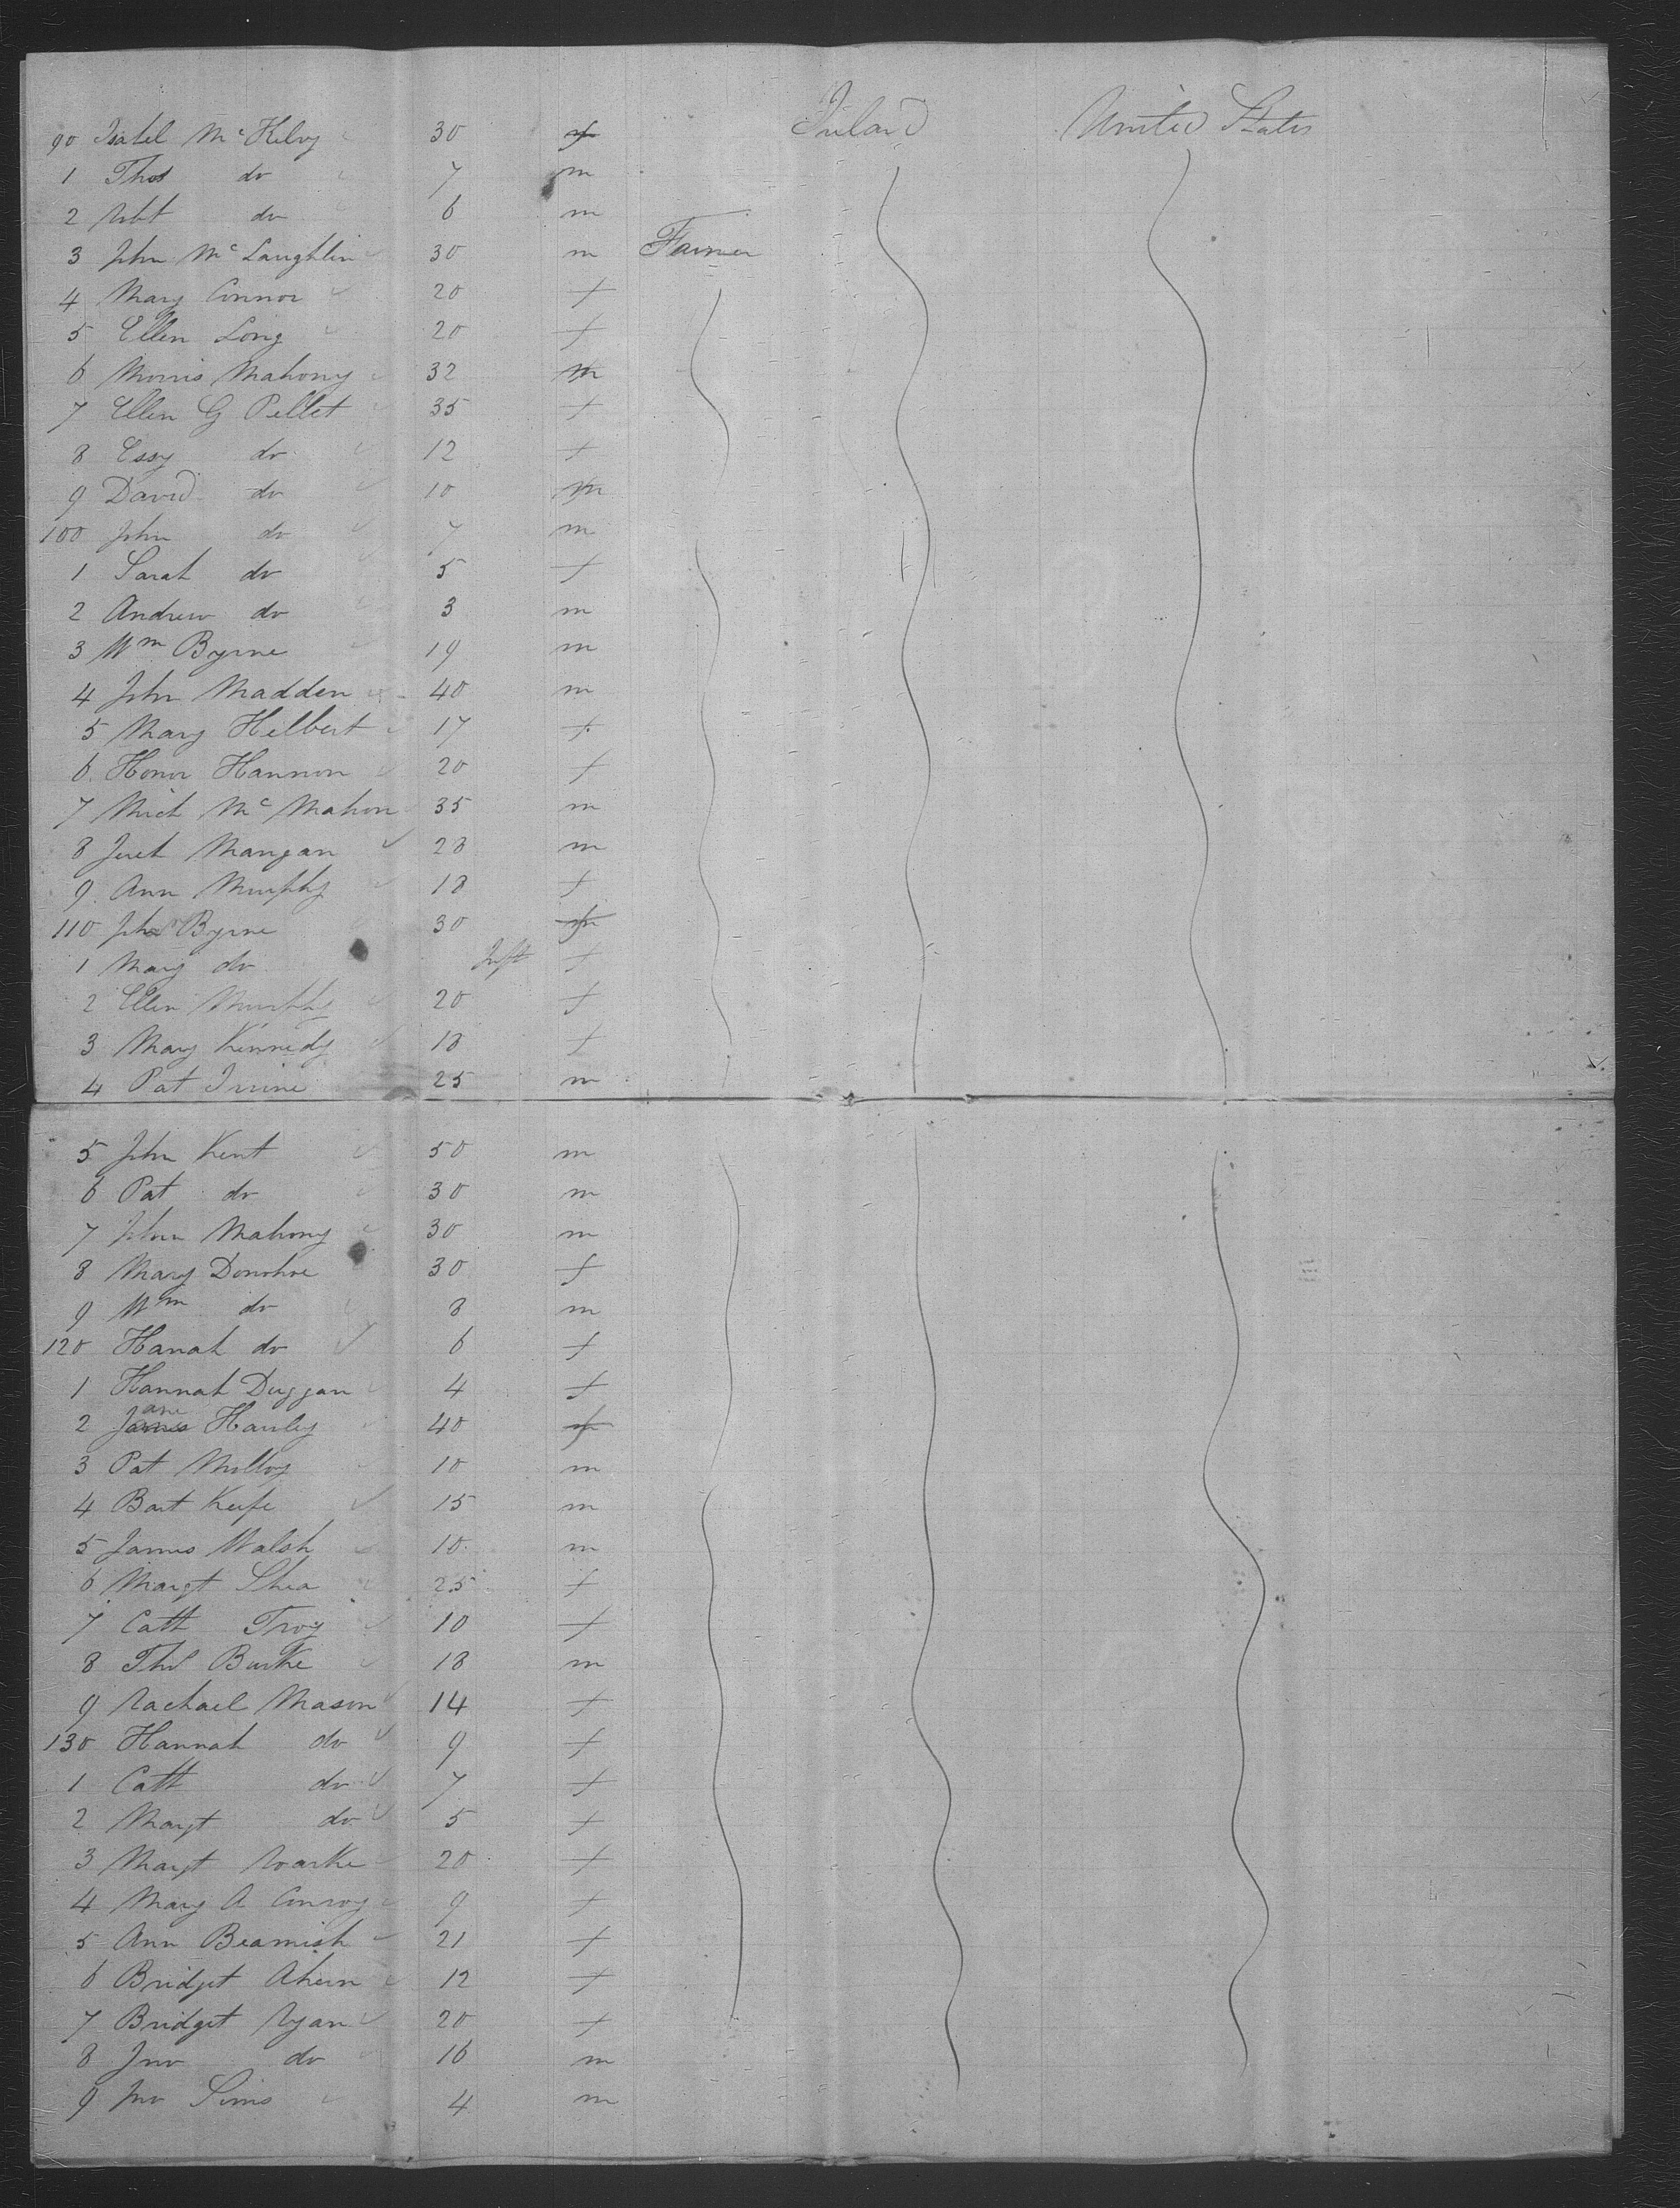 90 Isabel McKelvy 30 f Ireland United States
1 Thos do 7 m
2 Robt do 6 m
3 John McLaughlin 30 m Farmer
4 Mary Connor 20 f
5 Ellen Long 20 f
6 Morris Mahony 32 m
7 Ellen G Pellet 35 f
8 Essy do 12 f
9 David do 10 m
100 John do 7 m
1 Sarah do 5 f
2 Andrew do 3 m
3 Wm Byrne 19 m
4 John Madden 40 m
5 Mary Hilbert 17 f
6 Honor Hannon 20 f
7 Mich McMahon 35 m
8 Mangan 28 m
9 Ann Murphy 18 f
110 Byrne 30 f
1 Mary do Inft f
2 Ellen Murphy 20 f
3 Mary Kennedy 18 f
4 Pat Irvine 25 m
5 John Kent 50 m
6 Pat do 30 m
7 John Mahony 30 m
8 Mary Donohoe 30 f
9 Wm do 8 m
120 Hanah do 6 f
1 Hannah Duggan 4 f
2 Jane Hanley 40 f
3 Pat Molloy 10 m
4 Bart Keefe 15 m
5 James Walsh 10 m
6 Margt Shea 25 f
7 Cath Troy 10 f
8 Thos Burke 18 m
9 Rachael Mason 14 f
130 Hannah do 9 f
1 Cath do 7 f
2 Margt do 5 f
3 Margt Roarke 20 f
4 Mary A Conroy 9 f
5 Ann Beamish 21 f
6 Bridget Ahern 12 f
7 Bridget Ryan 20 f
8 Jno do 16 m
9 Jno Sims 4 m